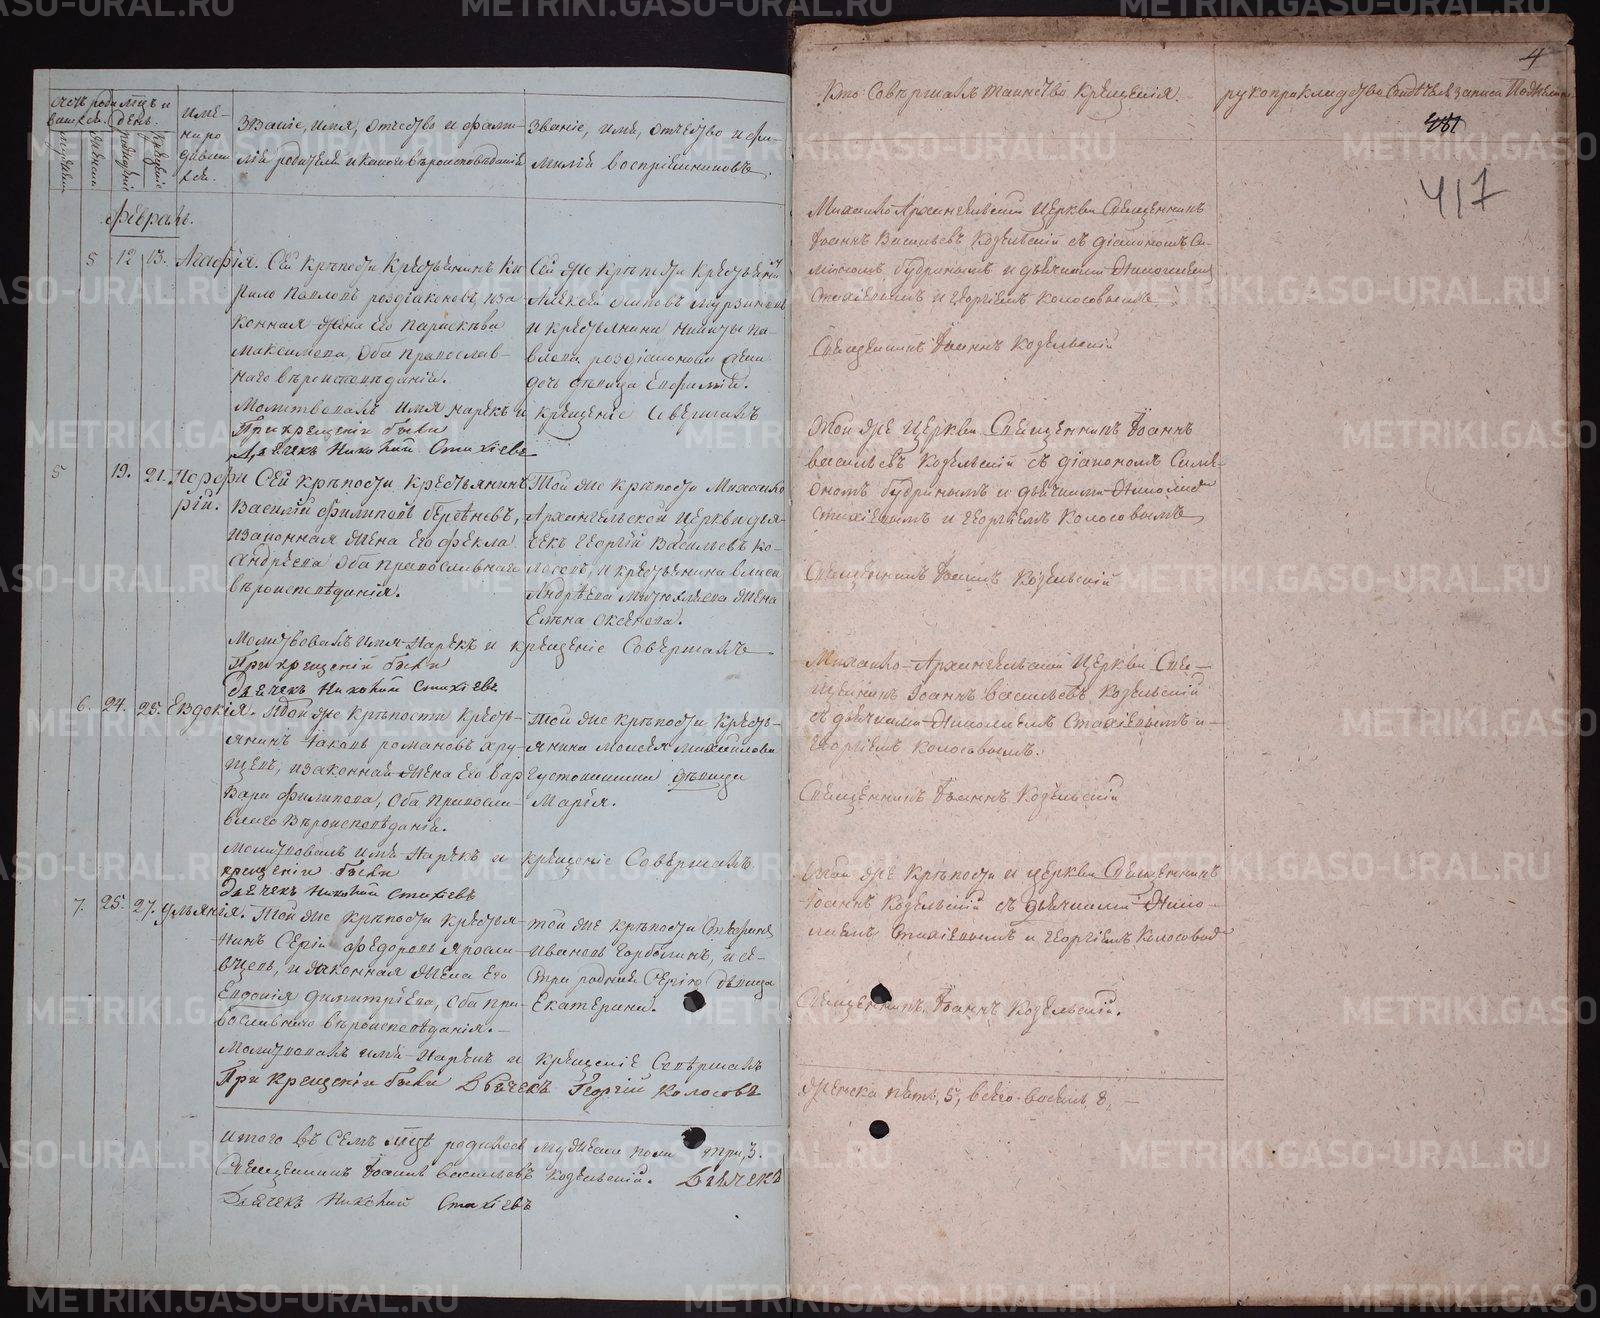 Имена родившихся.
Званіе, имя, отчество и фамилія родителей и какого вѣроисповѣданія
Званіе, имя, отчество и фамилія воспріемниковъ.
февраль.
5 12 13. Агафія. Сей крѣпости крестьянинъ Ки-
рило Павловъ роздіаконовъ и за-
конная жена его Параскѣва
Максимова, оба православ-
наго вѣроисповѣданія.
Сей же крѣпости крестьянинъ
Алексѣй Осиповъ Мурзинъ
и крестьянина Никиты Па-
влова роздіаконова
дочь дѣвица Евфимія.
Молитвовалъ имя нарекъ и крещеніе совершалъ
При крещеніи были
Дьячекъ Николай Стахіевъ
5 19. 21. Порфи-
рій.
Сей крѣпости крестьянинъ
Василій Филиповъ Берсеневъ,
и законная жена его Фекла
Андреева оба православнаго
вѣроисповѣданія.
Той же крѣпости Михайло
Архангельской церкви дья-
чекъ Георгій Васильевъ Ко-
лосовъ, и крестьянина
Андрѣева жена
Елена
Молитвовалъ имя нарекъ и крещеніе совершалъ
При крещеніи были
Дьячекъ Николай Стахіевъ
6. 24. 25. Евдокія. Той же крѣпости кресть-
янинъ Іаковъ Романовъ Хру-
щевъ, и законная жена его Вар-
вара Филипова, оба правосла-
внаго вѣроисповѣданія.
Той же крѣпости кресть-
янина Моисея Михайлова
дѣвица
Марія.
Молитвовалъ имя нарекъ и крещеніе совершалъ
крещеніи были
Дьячекъ Николай Стахіевъ
7. 25. 27. Ульянія. Той же крѣпости крестья-
нинъ Сергій Федоровъ Яросла-
вцевъ, и законная жена его
Евдокія Димитріева, оба пра-
вославнаго вѣроисповѣданія.
той же крѣпости
Ивановъ Горбунинъ, и се-
стра родная Сергію дѣвица
Екатерина.
Молитвовалъ имя нарекъ и крещеніе совершалъ
При крещеніи были Дьячекъ Георгій Колосовъ
Итого въ семъ мцѣ родилось мужеска пола три, 3.
Священникъ Іоаннъ Васильевъ Козельскій. Дьячекъ
Дьячекъ Николай Стахіевъ
4
Кто совершалъ таинство крещенія.
рукоприкладство свидѣтелей записи по желанію
417
Михайло Архангельской церкви священникъ
Іоаннъ Васильевъ Козельскій съ діакономъ Си-
меономъ Будринымъ и дьячками Николаемъ
Стахіевымъ и Георгіемъ Колосовымъ
Священникъ Іоаннъ Козельскій
Той же церкви священникъ Іоаннъ
Васильевъ Козельскій съ діакономъ Симе-
ономъ Будринымъ и дьячками Николаемъ
Стахіевымъ и Георгіемъ Колосовымъ
Священникъ Іоаннъ Козельскій
Михайло-Архангельской церкви свя-
щенникъ Іоаннъ Васильевъ Козельскій
съ дьячками Николаемъ Стахіевымъ и
Георгіемъ Колосовымъ.
Священникъ Іоаннъ Козельскій
Той же крѣпости и церкви священникъ
Іоаннъ Козельскій съ дьячками Нико-
лаемъ Стахіевымъ и Георгіемъ Колосовым
Священникъ Іоаннъ Козельскій.
Женска пять, 5, всего восемь 8,
METRIKI.GASO-URAL.RU